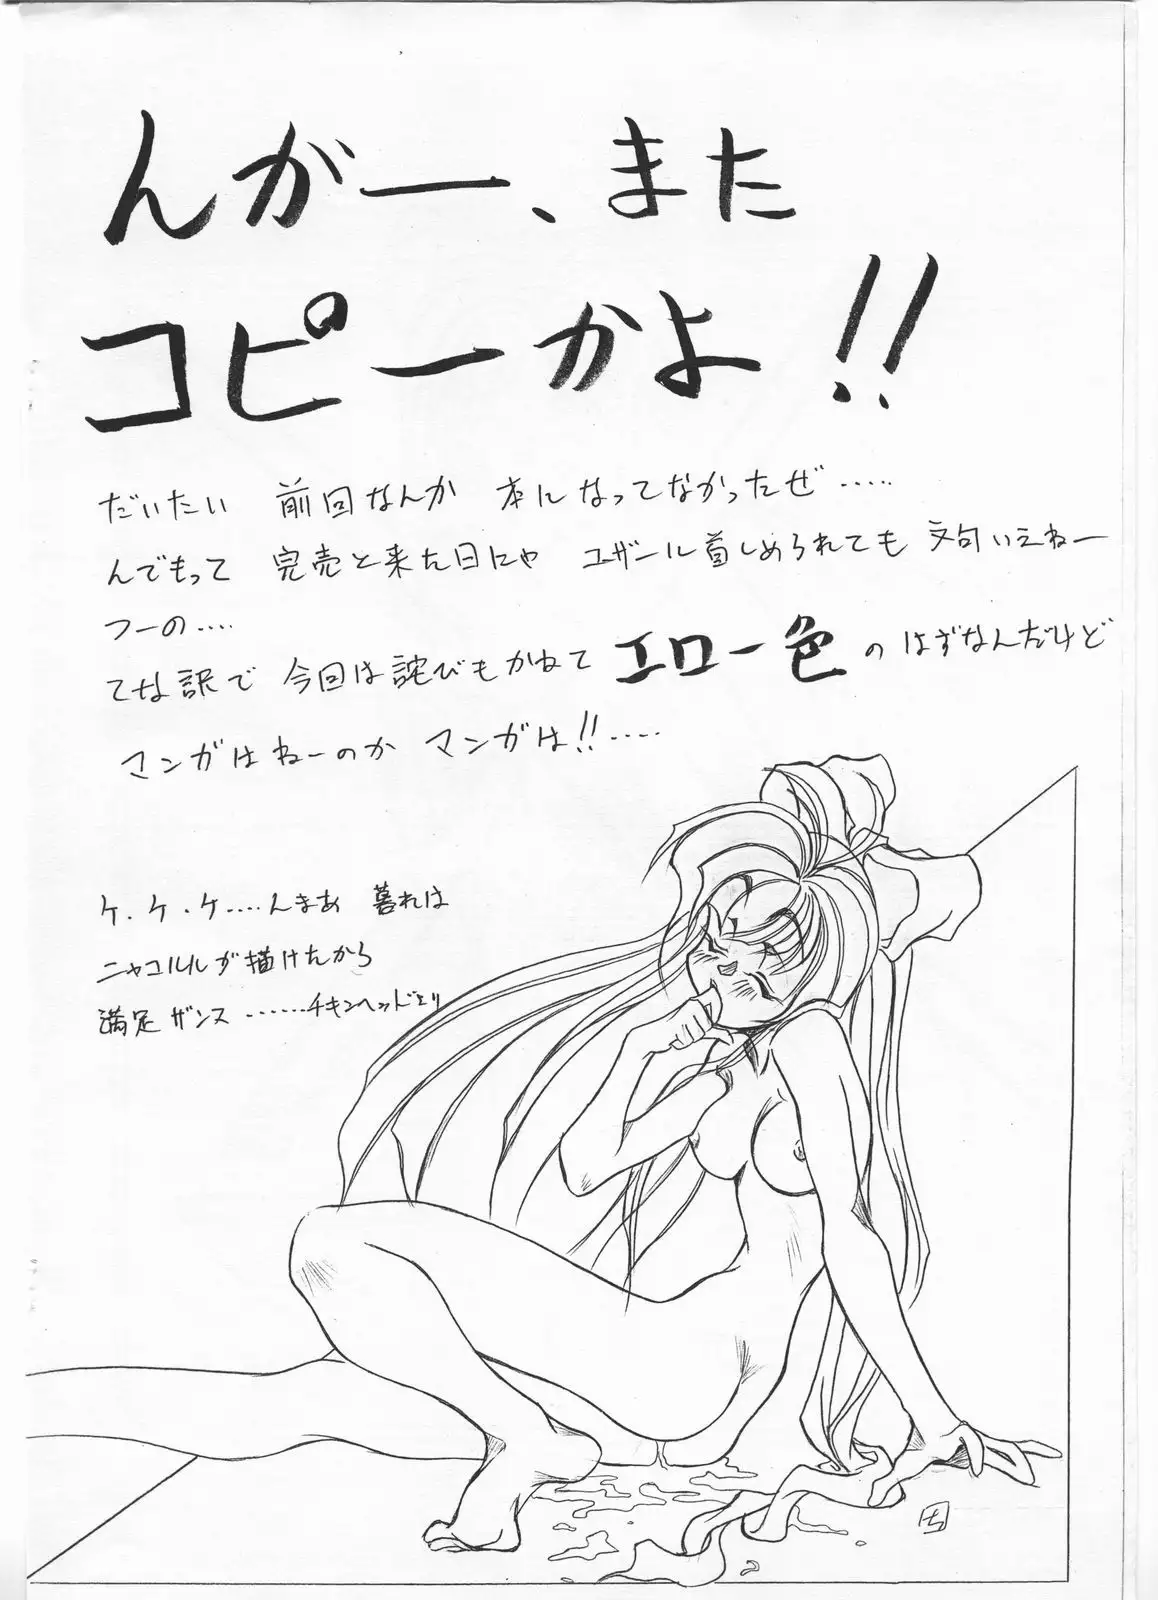 んがー、また
コピーかよ!!
だいたい 前回なんか 本になってなかったぜ……
んでもって 完売と来た日にゃ ユザール首しめられても 文句いえねー
つーの……
てな訳で 今回は詫びもかねて エロ一色 のはずなんだけど
マンガはねーのか マンガは!!……
ケ・ケ・ケ……んまあ 暮れは
ニャコルルが描けたから
満足ザンス ………チキンヘッドより